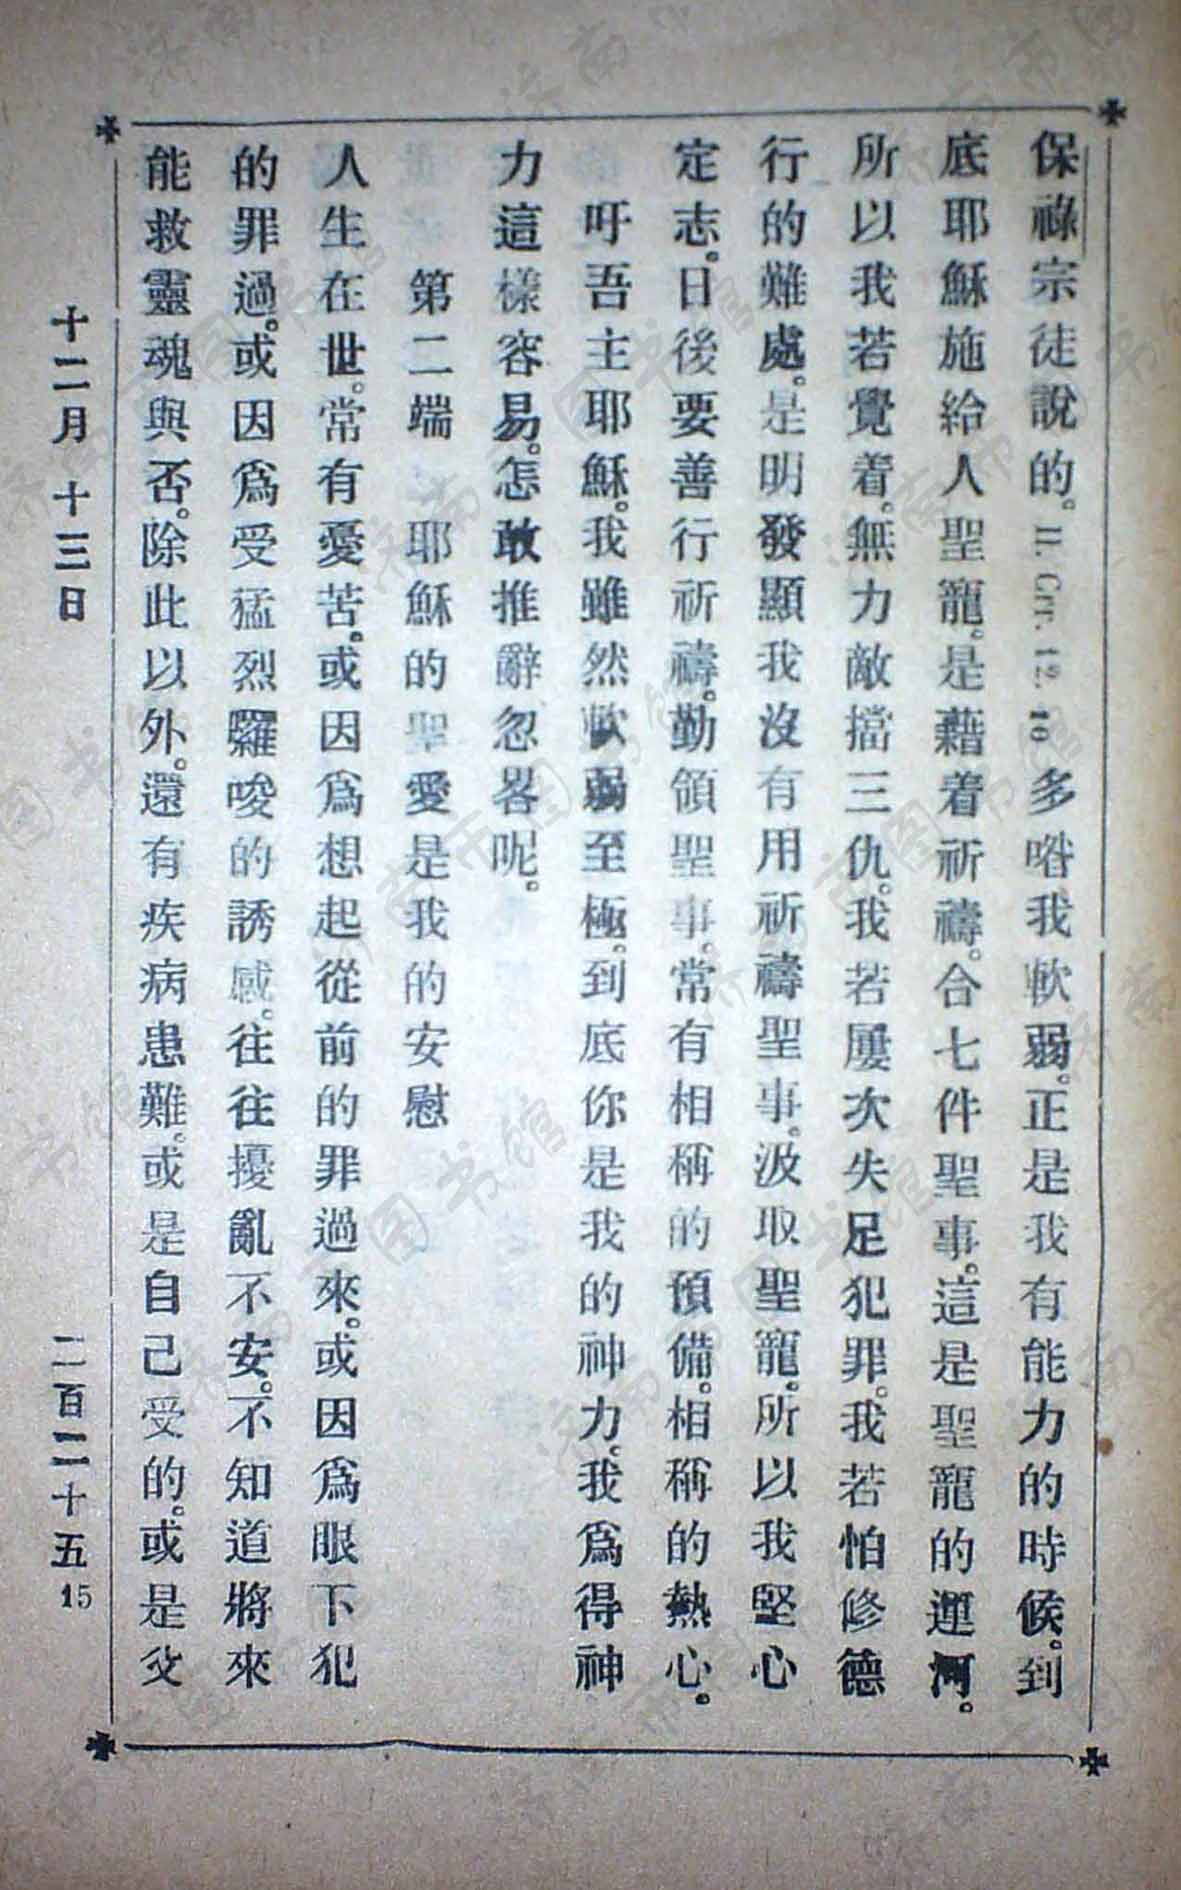 保祿宗徒說的。II. Crr. 12. 10 多喒我軟弱。正是我有能力的時候。到
底耶穌施給人聖寵。是藉着祈禱。合七件聖事。這是聖寵的運河。
所以我若覺着。無力敵擋三仇。我若屢次失足犯罪。我若怕修德
行的難處。是明發顯我沒有用祈禱聖事。汲取聖寵。所以我堅心
定志。日後要善行祈禱。勤領聖事。常有相稱的預備。相稱的熱心。
吁吾主耶穌。我雖然軟弱至極。到底你是我的神力。我爲得神
力這樣容易。怎敢推辭忽畧呢。
第二端 耶穌的聖愛是我的安慰
人生在世。常有憂苦。或因爲想起從前的罪過來。或因爲眼下犯
的罪過。或因爲受猛烈囉唆的誘感。往往擾亂不安。不知道將來
能救靈魂與否。除此以外。還有疾病患難。或是自己受的。或是父
十二月 十三日
二百二十五
15
济南市图书馆